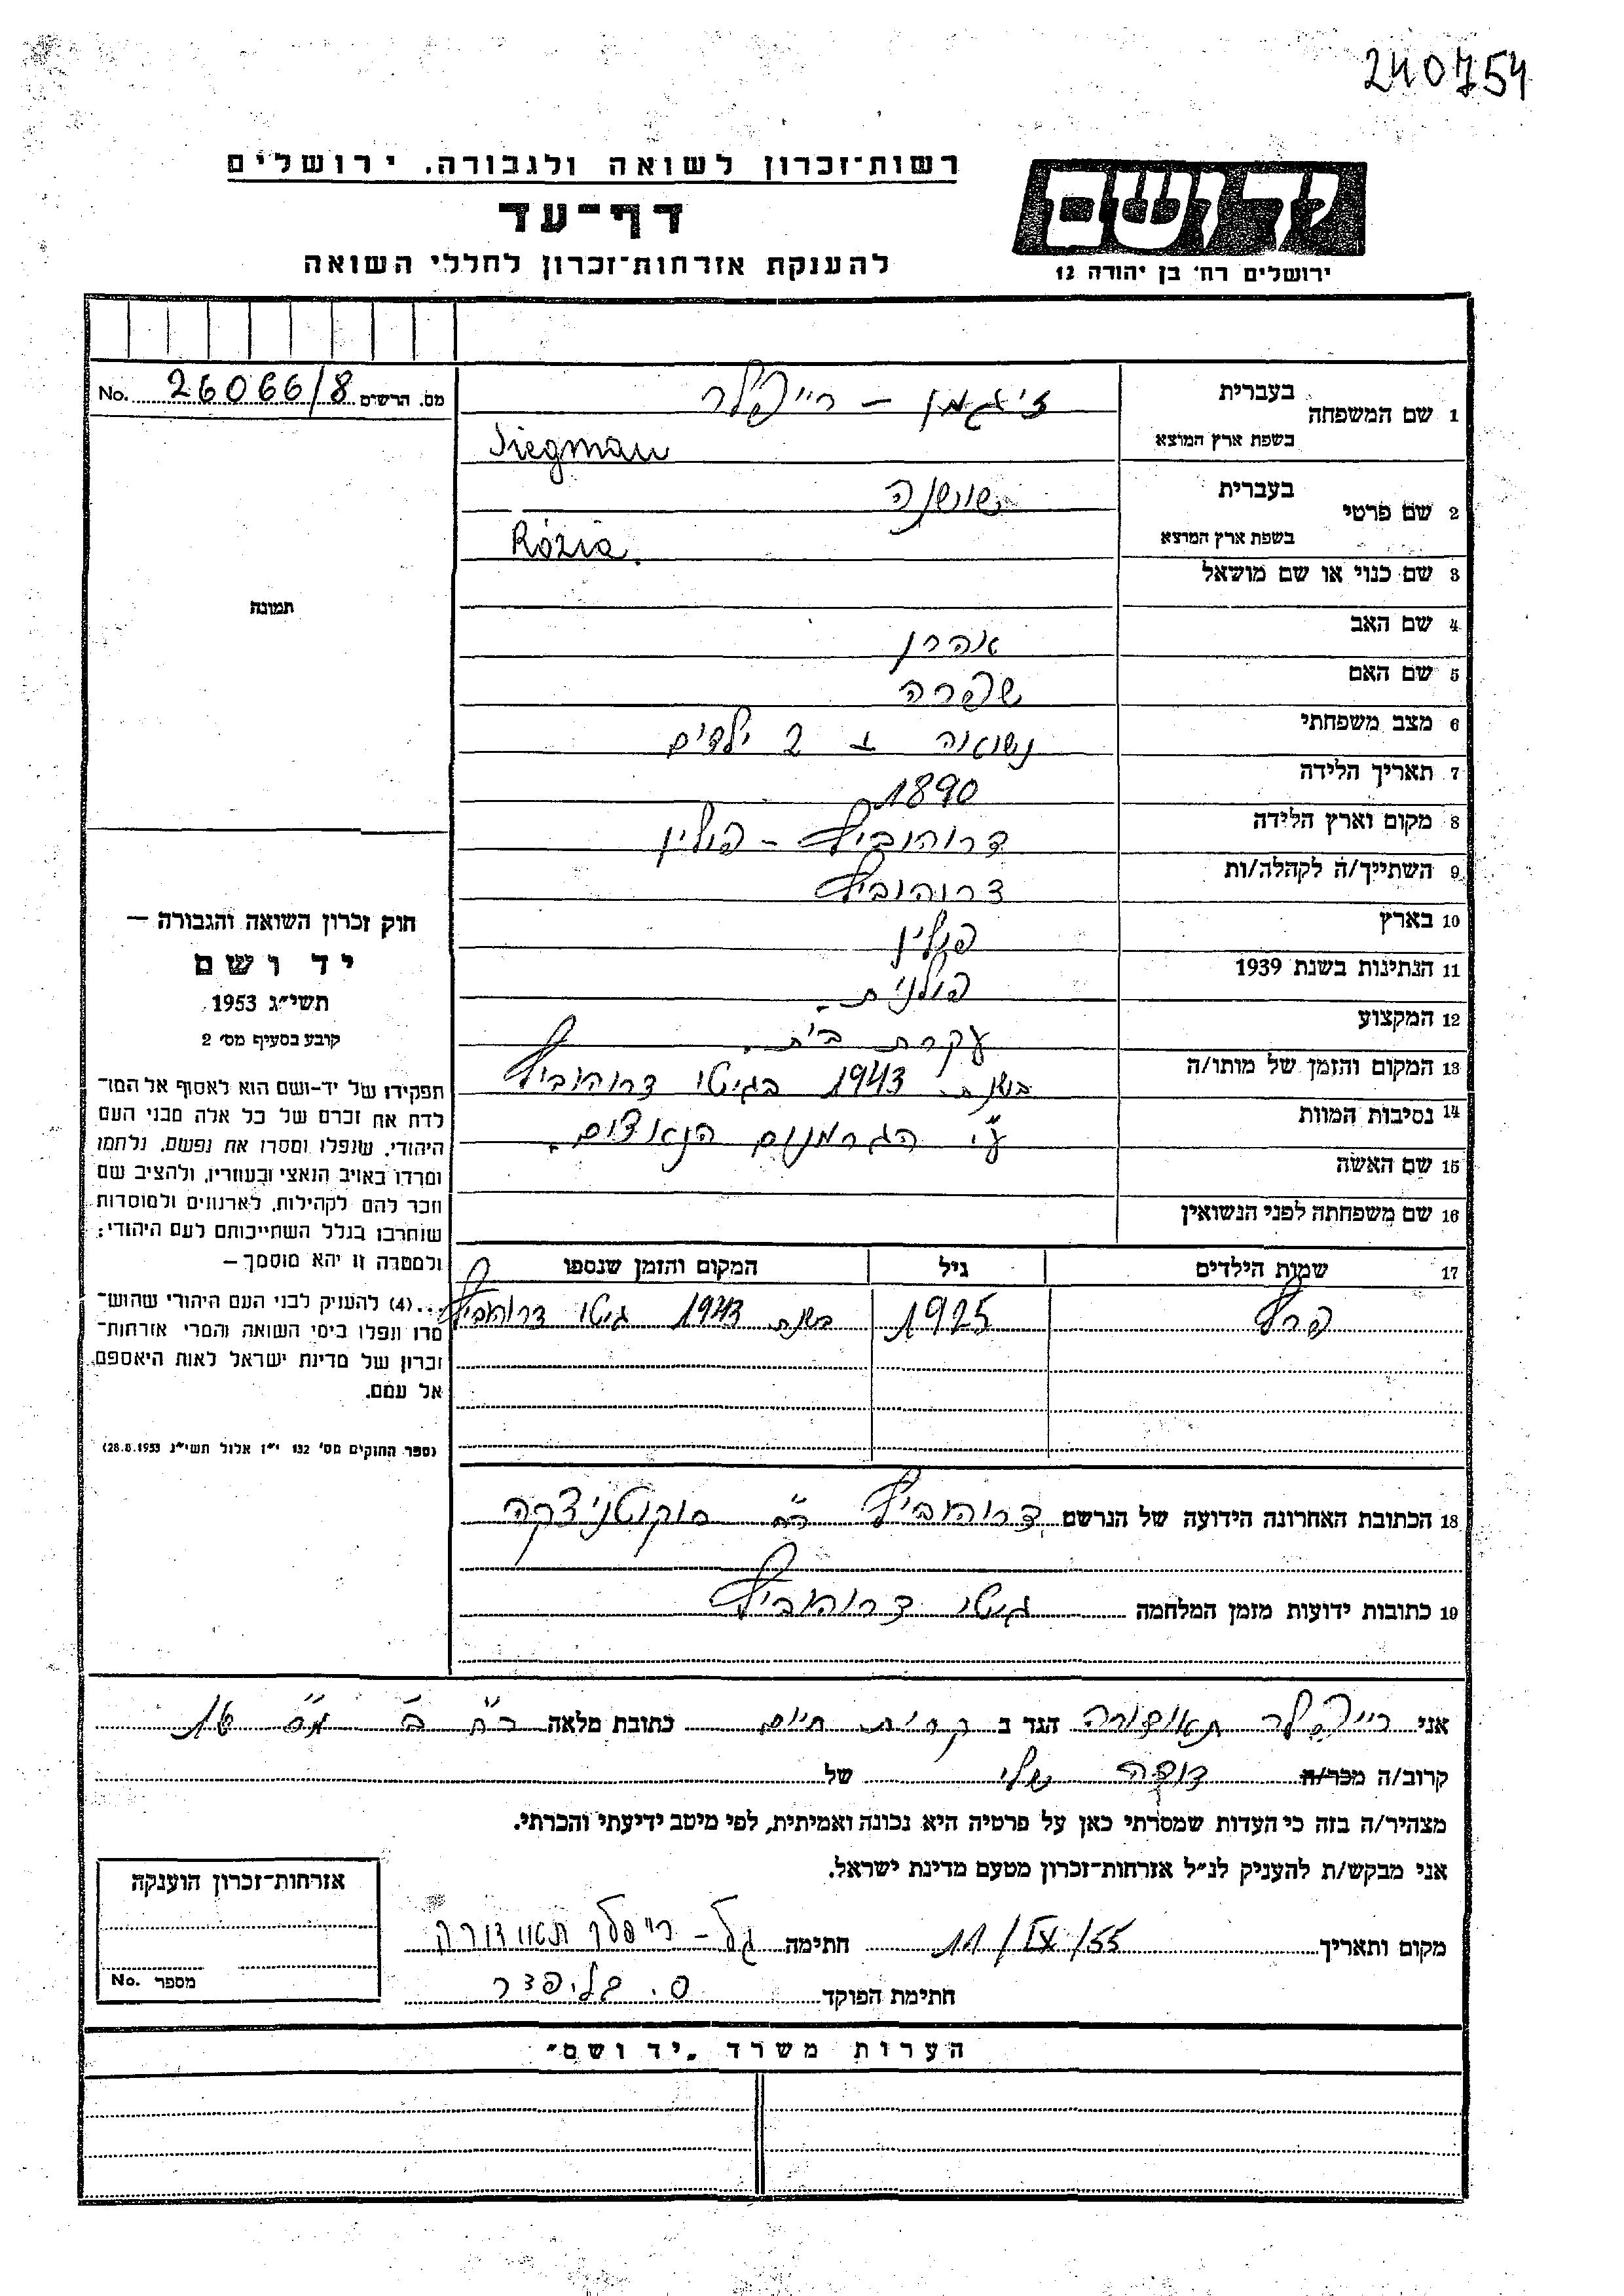 240754
רשות־זכרון לשואה ולגבורה. ירושלים
דף־עד
להענקת אזרחות־זכרון לחללי השואה
יד ושם
ירושלים רח׳ בן יהודה 12
מס. הרשים 26066/8 No.
1 שם המשפחה
בעברית זיגמן – רייפלר
בשפת ארץ המוצא Siegman
2 שם פרטי
בעברית שושנה
בשפת ארץ המוצא Rózia.
3 שם כנוי או שם מושאל
4 שם האב אהרן
5 שם האם שפרה
6 מצב משפחתי נשואה + 2 ילדים
7 תאריך הלידה 1890
8 מקום וארץ הלידה דרוהוביץ – פולין
9 השתייך/ה לקהלה/ות דרוהוביץ
10 בארץ פולין
11 הנתינות בשנת 1939 פולנית.
12 המקצוע עקרת בית.
13 המקום והזמן של מותו/ה בשנת 1943 בגיטו דרוהוביץ
14 נסיבות המוות ע״י הגרמנים הנאצים.
15 שם האשה
16 שם משפחתה לפני הנשואין
17 שמות הילדים גיל המקום והזמן שנספו
פרץ 1925 בשנת 1943 גיטו דרוהוביץ
18 הכתובת האחרונה הידועה של הנרשם דרוהוביץ רח׳
19 כתובות ידועות מזמן המלחמה גיטו דרוהוביץ
תמונה
חוק זכרון השואה והגבורה —
יד ושם
תשי״ג 1953
קובע בסעיף מס׳ 2
תפקידו של יד-ושם הוא לאסוף אל המו־
לדת את זכרם של כל אלה מבני העם
היהודי, שנפלו ומסרו את נפשם, נלחמו
ומרדו באויב הנאצי ובעוזריו, ולהציב שם
וזכר להם לקהילות, לארגונים ולמוסדות
שנחרבו בגלל השתייכותם לעם היהודי;
ולמטרה זו יהא מוסמך —
...(4) להעניק לבני העם היהודי שהוש־
מדו ונפלו בימי השואה והמרי אזרחות־
זכרון של מדינת ישראל לאות היאספם
אל עמם.
(ספר החוקים מס׳ 132 י״ז אלול תשי״ג 28.8.1953)
אני רייפלר תאודורה הגר ב קרית חיים כתובת מלאה רח ב מס 16
קרוב/ה מכר/ה דודה שלי של
מצהיר/ה בזה כי העדות שמסרתי כאן על פרטיה היא נכונה ואמיתית, לפי מיטב ידיעתי והכרתי.
אני מבקש/ת להעניק לנ״ל אזרחות־זכרון מטעם מדינת ישראל.
מקום ותאריך 11/IX/55 חתימה גל – רייפלר תאודורה
חתימת הפוקד
אזרחות־זכרון הוענקה
מספר No.
הערות משרד „יד ושם״